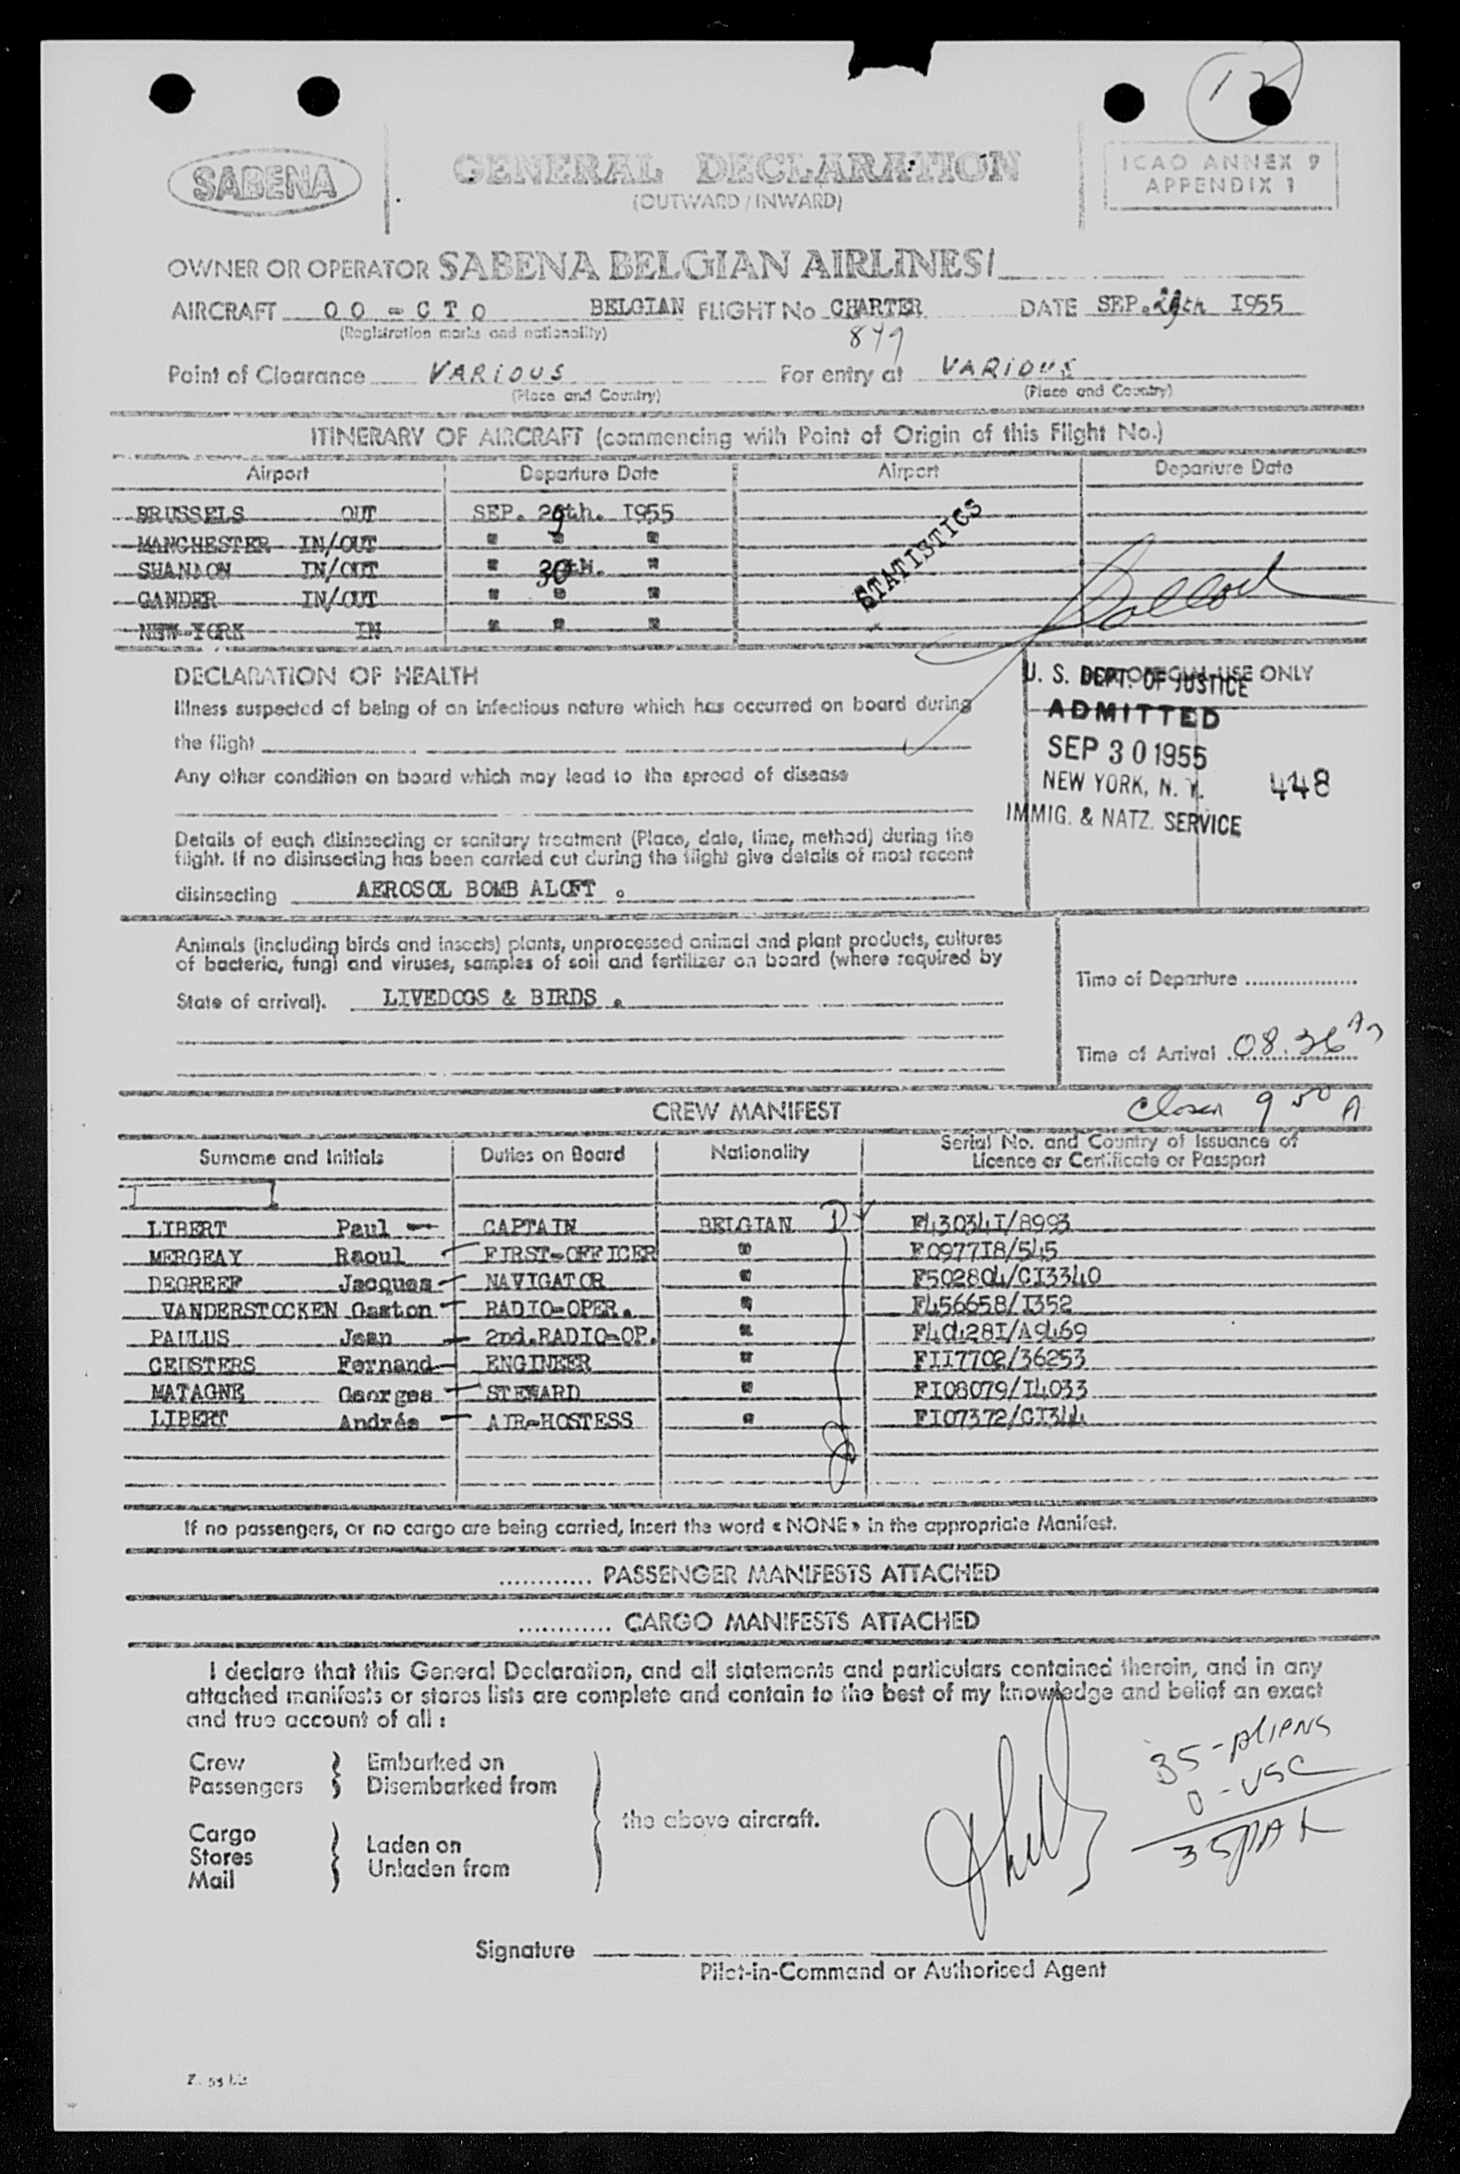 12
SABENA
GENERAL DECLARATION
(OUTWARD / INWARD)
ICAO ANNEX 9
APPENDIX 1
OWNER OR OPERATOR SABENA BELGIAN AIRLINES/
AIRCRAFT OO - CTO BELGIAN FLIGHT No CHARTER DATE SEP. 29th 1955
(Registration marks and nationality)
879
Point of Clearance VARIOUS For entry at VARIOUS
(Place and Country) (Place and Country)
ITINERARY OF AIRCRAFT (commencing with Point of Origin of this Flight No.)
Airport Departure Date Airport Departure Date
BRUSSELS OUT SEP. 29th. I955
MANCHESTER IN/OUT " " "
SHANNON IN/OUT " 30th. "
GANDER IN/OUT " " "
NEW-YORK IN " " "
STATISTICS
DECLARATION OF HEALTH
Illness suspected of being of an infectious nature which has occurred on board during
the flight
Any other condition on board which may lead to the spread of disease
Details of each disinsecting or sanitary treatment (Place, date, time, method) during the
flight. If no disinsecting has been carried out during the flight give details of most recent
disinsecting AEROSOL BOMB ALOFT .
FOR OFFICIAL USE ONLY
U. S. DEPT. OF JUSTICE
ADMITTED
SEP 30 1955
NEW YORK, N. Y. 448
IMMIG. & NATZ. SERVICE
Animals (including birds and insects) plants, unprocessed animal and plant products, cultures
of bacteria, fungi and viruses, samples of soil and fertilizer on board (where required by
State of arrival). LIVEDOGS & BIRDS .
Time of Departure ...................
Time of Arrival 08.36
CREW MANIFEST
Surname and Initials Duties on Board Nationality Serial No. and Country of Issuance of
Licence or Certificate or Passport
LIBERT Paul CAPTAIN BELGIAN F43034I/8993
MERGEAY Raoul FIRST-OFFICER " F0977I8/545
DEGREEF Jacques NAVIGATOR " F502804/CI3340
VANDERSTOCKEN Gaston RADIO-OPER. " F456658/I352
PAULUS Jean 2nd.RADIO-OP. " F40428I/A9469
CEUSTERS Fernand ENGINEER " FII7702/36253
MATAGNE Georges STEWARD " FI08079/I4033
LIBERT Andrée AIR-HOSTESS " FI07372/CI344
If no passengers, or no cargo are being carried, insert the word « NONE » in the appropriate Manifest.
............ PASSENGER MANIFESTS ATTACHED
............ CARGO MANIFESTS ATTACHED
I declare that this General Declaration, and all statements and particulars contained therein, and in any
attached manifests or stores lists are complete and contain to the best of my knowledge and belief an exact
and true account of all :
Crew Embarked on
Passengers Disembarked from
the above aircraft.
Cargo
Stores Laden on
Mail Unladen from
35 - ALIENS
0 - USC
35 PAX
Signature
Pilot-in-Command or Authorised Agent